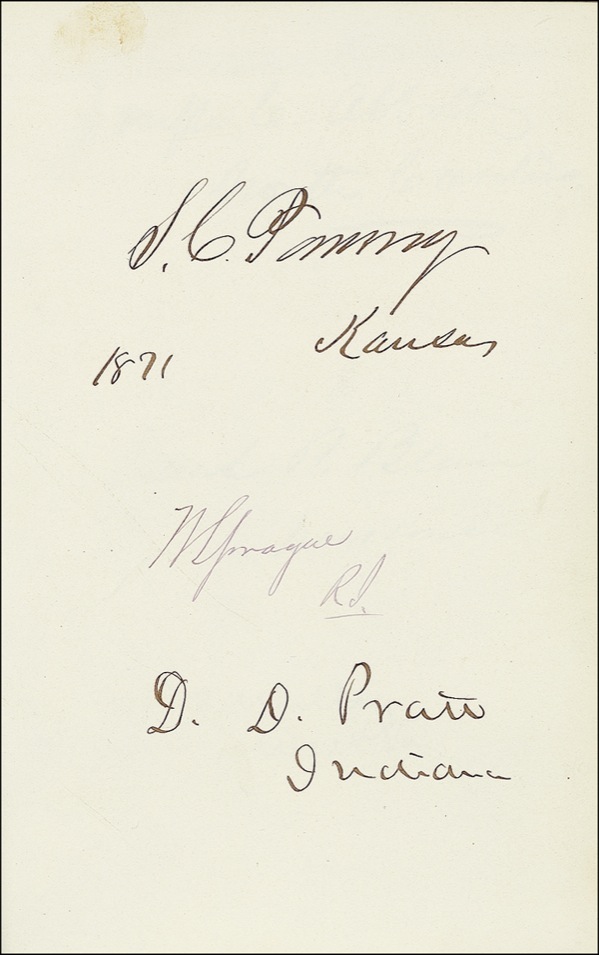 S. C. Pomeroy
Kansas
1871
W Sprague
R.I.
D. D. Pratt
Indiana